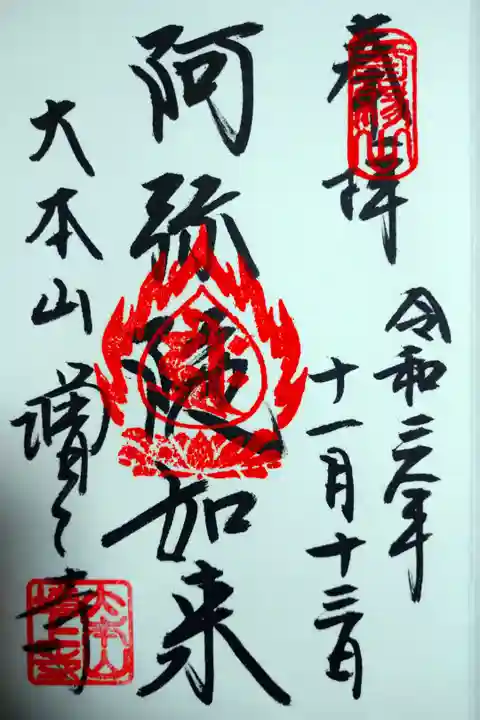 奉拝
令和三年
十一月十三日
阿弥陀如来
大本山 増上寺
大本山
増上寺